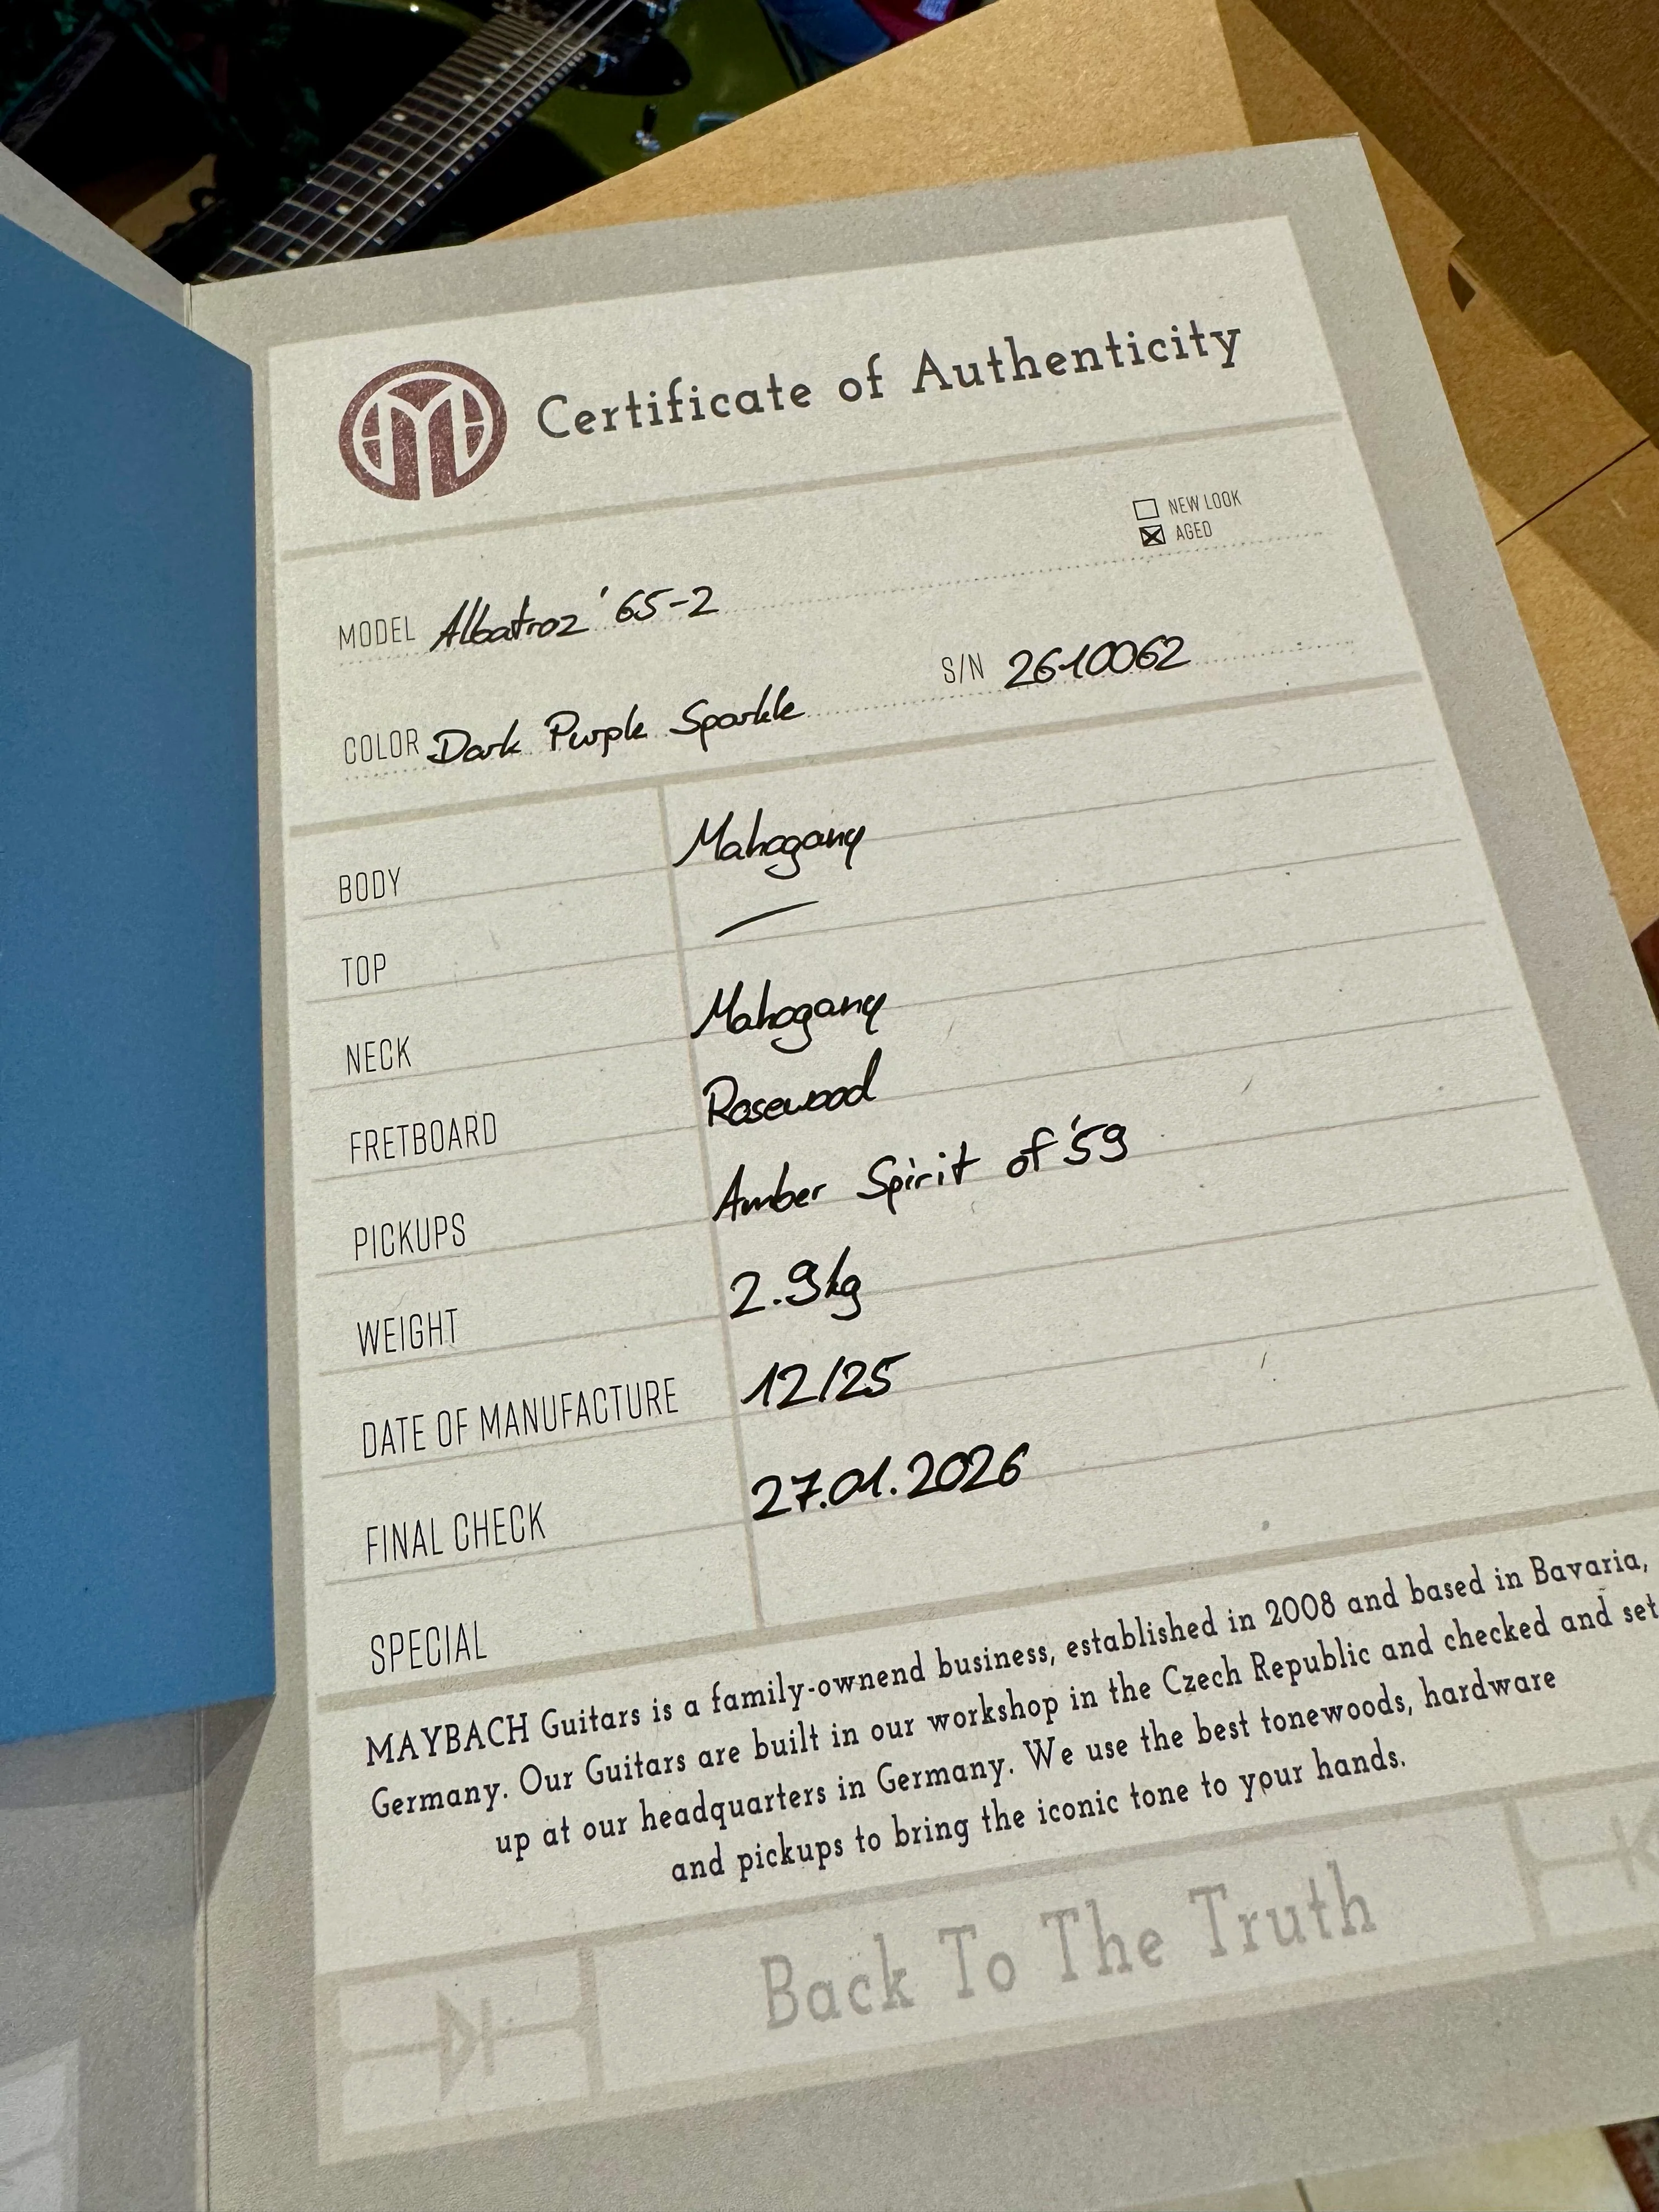 Certificate of Authenticity
NEW LOOK
AGED
MODEL Albatroz '65-2
S/N 2610062
COLOR Dark Purple Sparkle
BODY Mahogany
TOP —
NECK Mahogany
FRETBOARD Rosewood
PICKUPS Amber Spirit of '59
WEIGHT 2.9kg
DATE OF MANUFACTURE 12/25
FINAL CHECK 27.01.2026
SPECIAL
MAYBACH Guitars is a family-ownend business, established in 2008 and based in Bavaria,
Germany. Our Guitars are built in our workshop in the Czech Republic and checked and set
up at our headquarters in Germany. We use the best tonewoods, hardware
and pickups to bring the iconic tone to your hands.
Back To The Truth